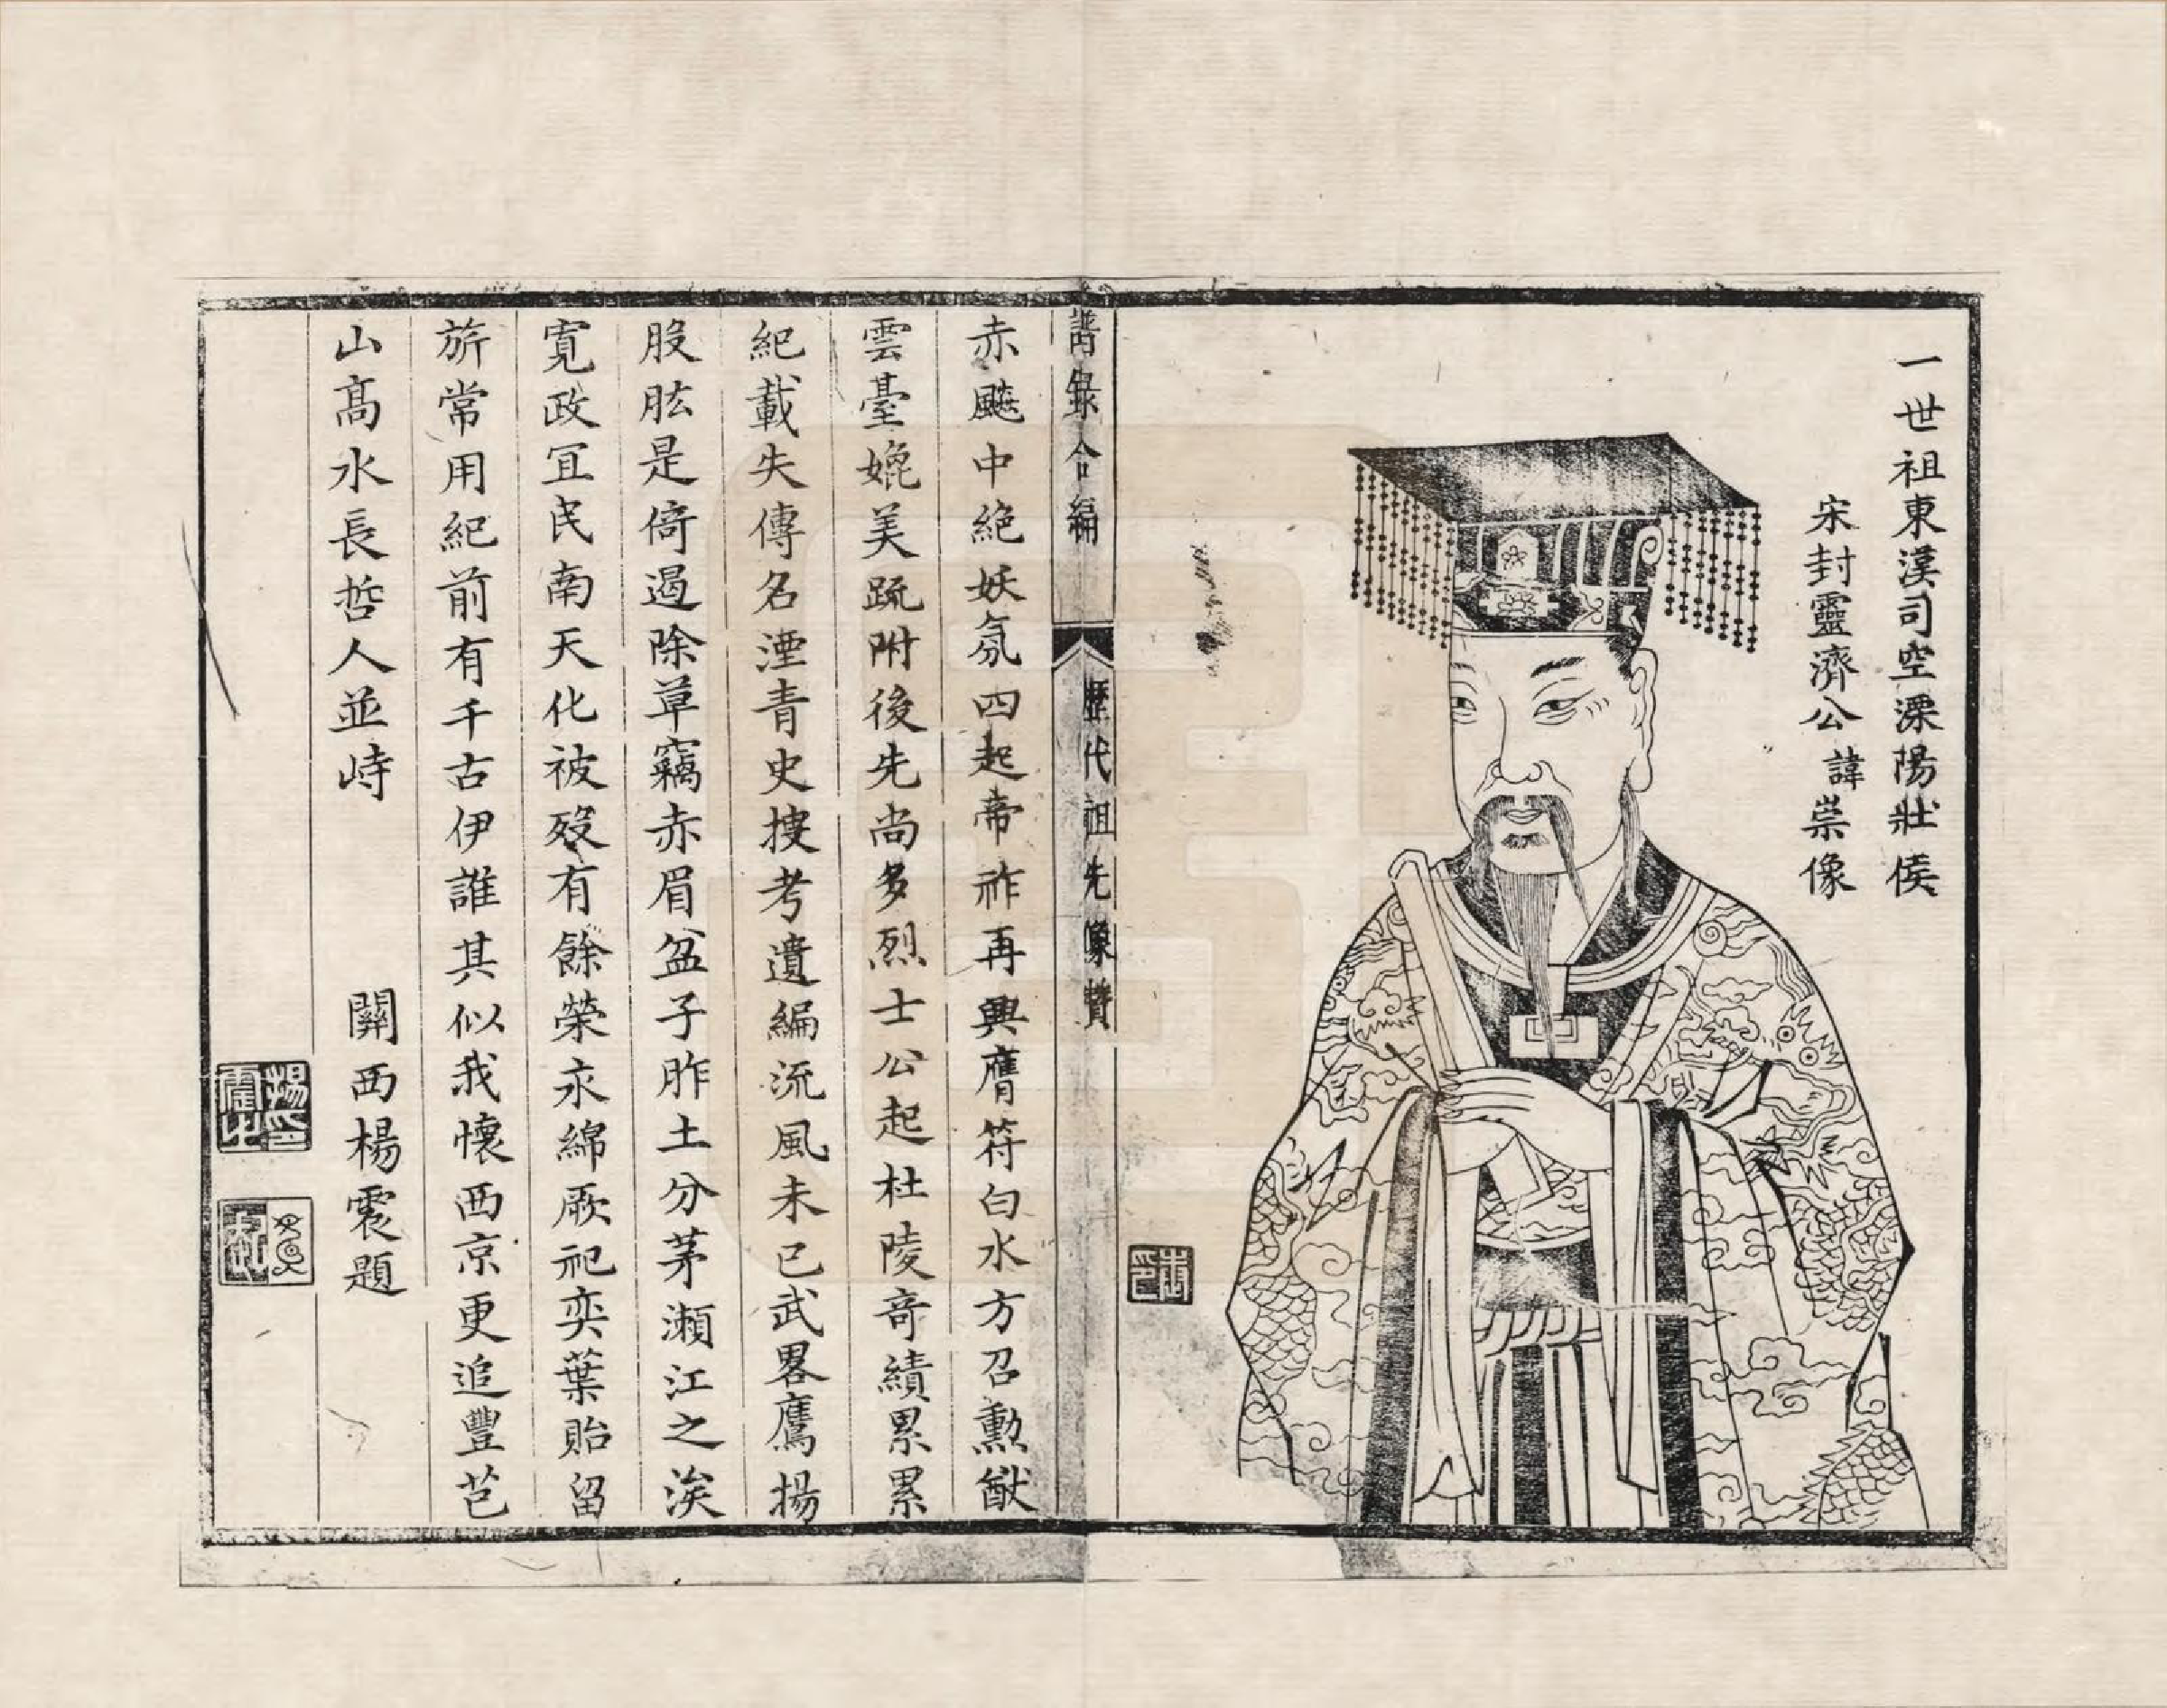 一世祖東漢司空溧陽壯侯
宋封靈濟公諱崇像
譜錄合編
歷代祖先像贊
赤飈中絕妖氛四起帝祚再興膺符白水方召勲猷
雲臺媲美䟽附後先尚多烈士公起杜陵竒績累累
紀載失傳名湮青史搜考遺編流風未已武畧鷹揚
股肱是倚遏除草竊赤眉盆子胙土分茅瀬江之涘
寬政冝民南天化被歿有餘榮永綿厥祀奕葉貽留
旂常用紀前有千古伊誰其似我懷西京更追豐芑
山髙水長哲人並峙
關西楊震題
楊震之印